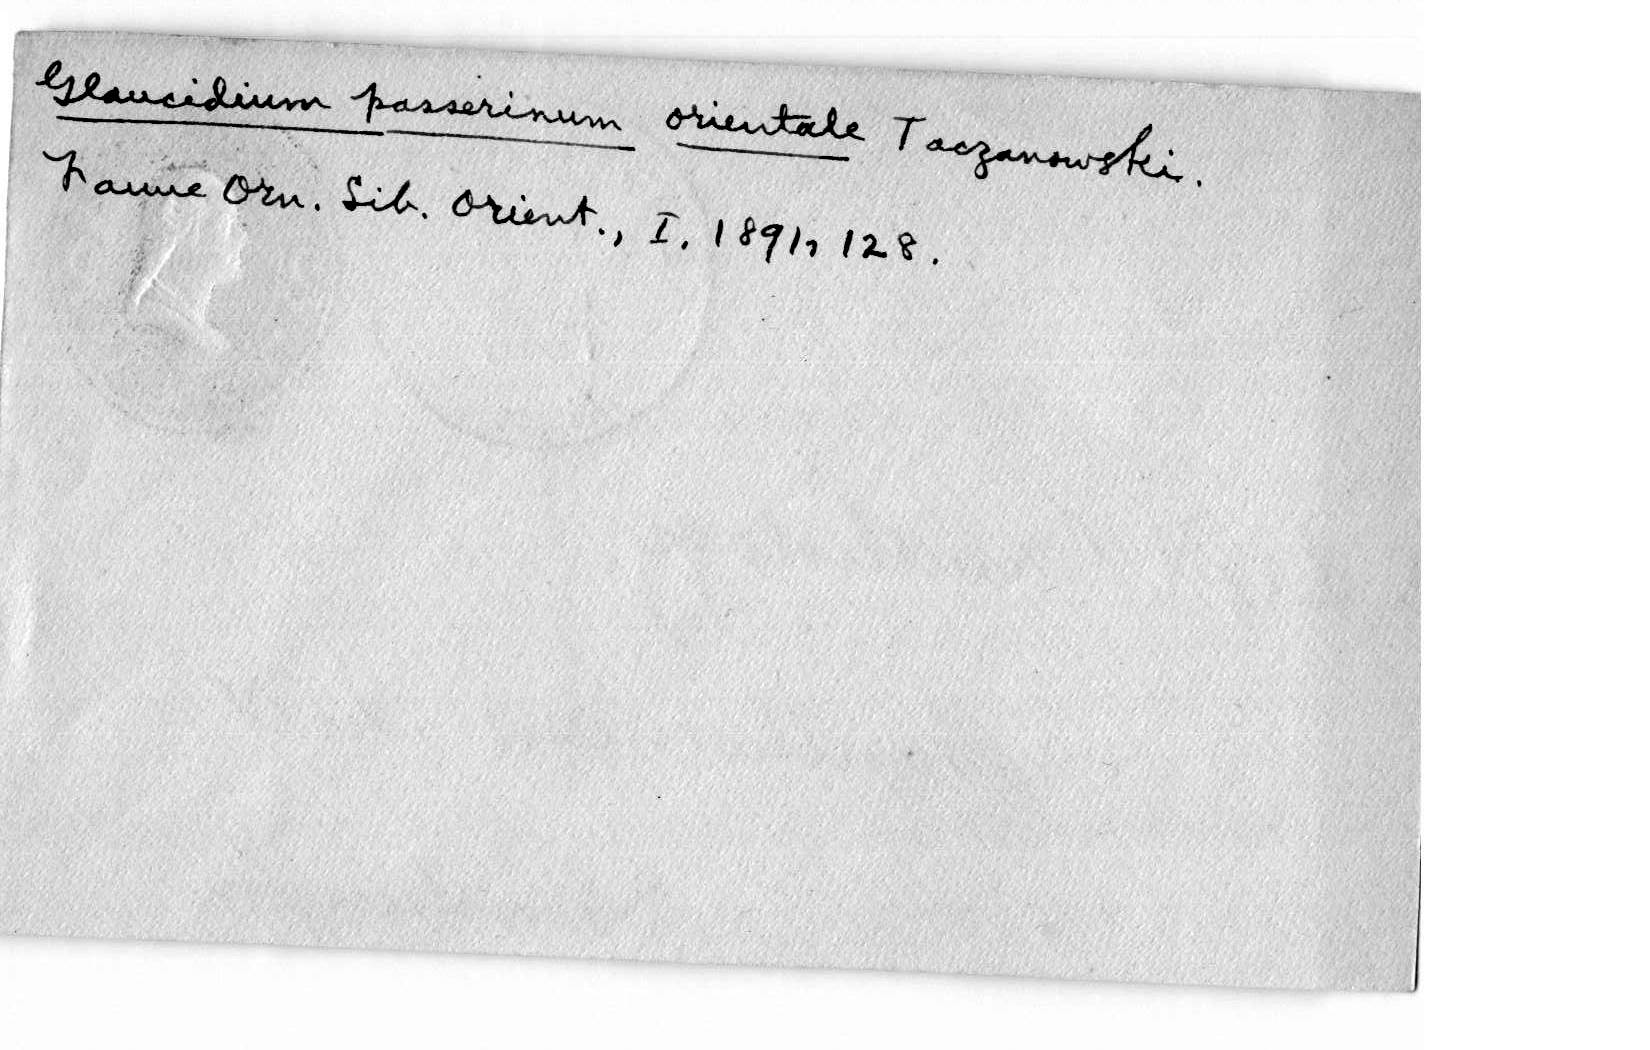 Glaucidium passerinum orientale Taczanowski.
Faune Orn. Sib. Orient., I, 1891, 128.